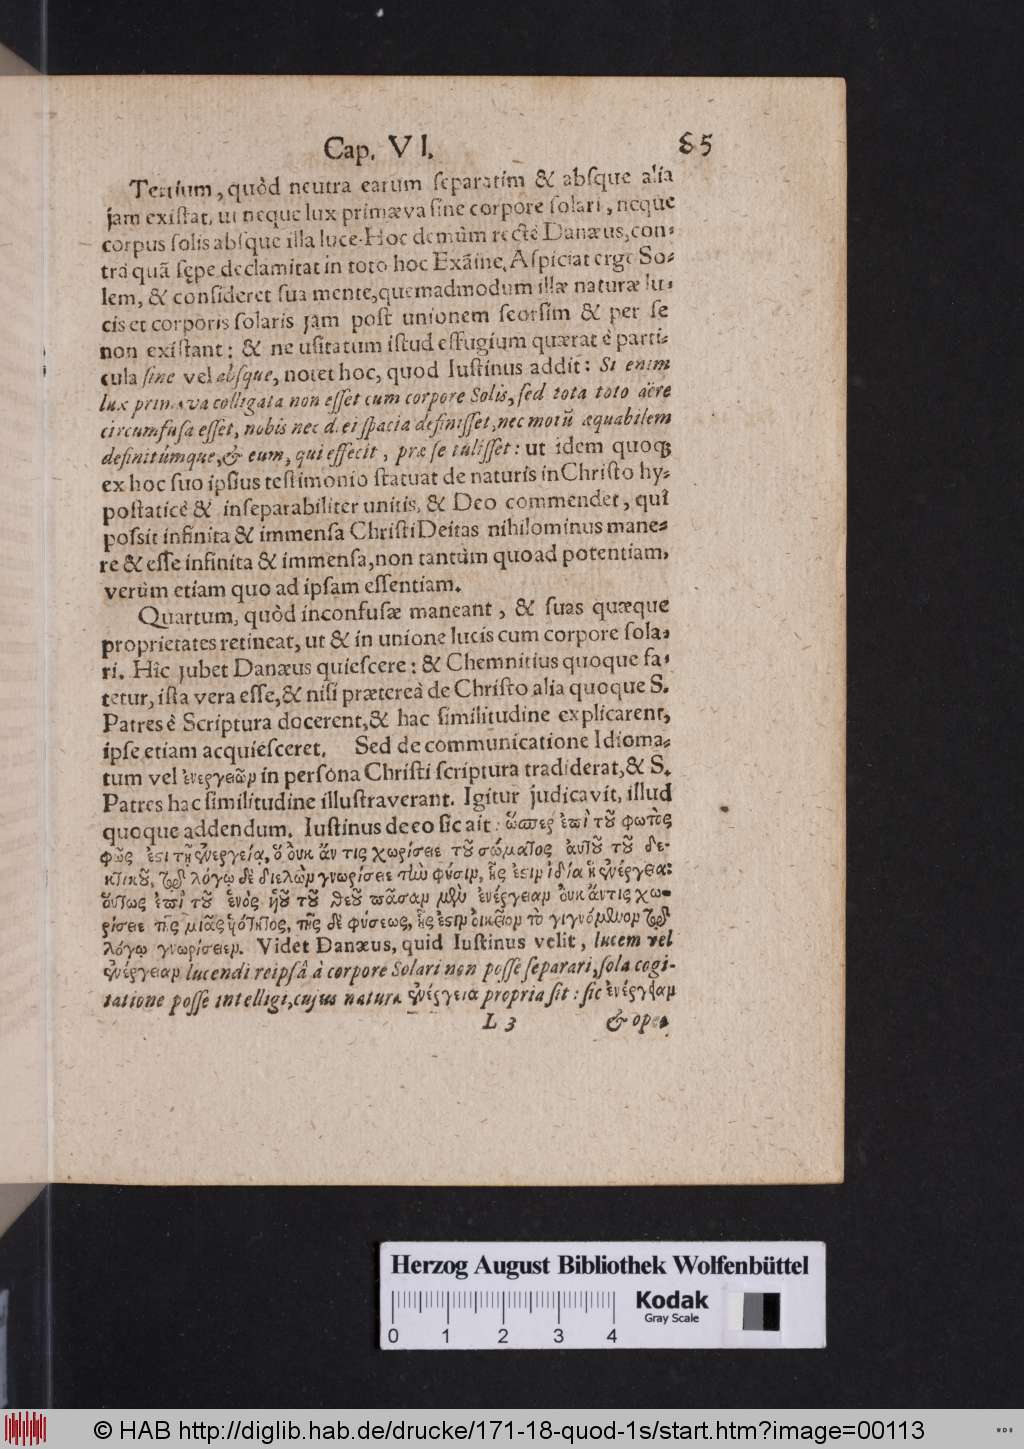 Cap. VI. 85
Tertium, quòd neutra earum ſeparatim & abſque alia
jam exiſtat, ut neque lux primæva ſine corpore ſolari, neque
corpus ſolis abſque illa luce. Hoc demùm rectè Danæus, con-
tra quã ſępe declamitat in toto hoc Exãine. Aſpiciat ergo So-
lem, & conſideret ſua mente, quemadmodum illæ naturæ lu-
cis et corporis ſolaris jam poſt unionem ſeorſim & per ſe
non exiſtant: & ne uſitatum iſtud effugium quærat è parti-
cula ſine vel abſque, notet hoc, quod Iuſtinus addit: Si enim
lux primæva colligata non eſſet cum corpore Solis, ſed tota toto aëre
circumfuſa eſſet, nobis nec diei ſpacia definiſſet, nec motũ æquabilem
definitúmque, & eum, qui effecit, præ ſe tuliſſet: ut idem quoqꝫ
ex hoc ſuo ipſius teſtimonio ſtatuat de naturis in Chriſto hy-
poſtaticè & inſeparabiliter unitis, & Deo commendet, quî
poſsit infinita & immenſa Chriſti Deitas nihilominus mane-
re & eſſe infinita & immenſa, non tantùm quoad potentiam,
verùm etiam quo ad ipſam eſſentiam.
Quartum, quòd inconfuſæ maneant, & ſuas quæque
proprietates retineat, ut & in unione lucis cum corpore ſola-
ri. Hîc jubet Danæus quieſcere: & Chemnitius quoque fa-
tetur, iſta vera eſſe, & niſi prætereà de Chriſto alia quoque S.
Patres è Scriptura docerent, & hac ſimilitudine explicarent,
ipſe etiam acquieſceret. Sed de communicatione Idioma-
tum vel ἐνεργειῶν in perſona Chriſti ſcriptura tradiderat, & S.
Patres hac ſimilitudine illuſtraverant. Igitur judicavit, illud
quoque addendum. Iuſtinus de eo ſic ait: ὥσπερ ἐπὶ τοῦ φωτὸς
φῶς ἐστι τῇ ἐνεργείᾳ, ὃ οὐκ ἄν τις χωρίσειε τοῦ σώματος αὐτοῦ τοῦ δε-
κτικοῦ, τῷ λόγῳ δὲ διελὼν γνωρίσειε τὴν φύσιν, ἧς ἐστιν ἰδία ἡ ἐνέργεια:
οὕτως ἐπὶ τοῦ ἑνὸς ὑοῦ τοῦ θεοῦ πᾶσαν μὲν ἐνέργειαν οὐκ ἄν τις χω-
ρίσειε τῆς μιᾶς ὑότητος, τῆς δὲ φύσεως, ἧς ἐστιν οἰκεῖον τὸ γιγνόμενον τῷ
λόγῳ γνωρίσειεν. Videt Danæus, quid Iuſtinus velit, lucem vel
ἐνέργειαν lucendi reipſâ à corpore Solari non poſſe ſeparari, ſola cogi-
tatione poſſe intelligi, cujus natura ἐνέργεια propria ſit: ſic ἐνέργειαν
L 3 & ope-
Herzog August Bibliothek Wolfenbüttel
0 1 2 3 4
Kodak
Gray Scale
© HAB http://diglib.hab.de/drucke/171-18-quod-1s/start.htm?image=00113